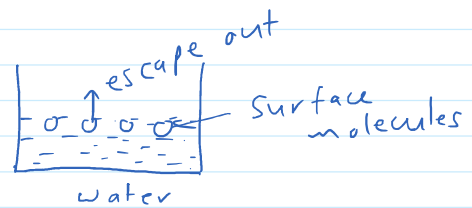 escape out
surface
molecules
water